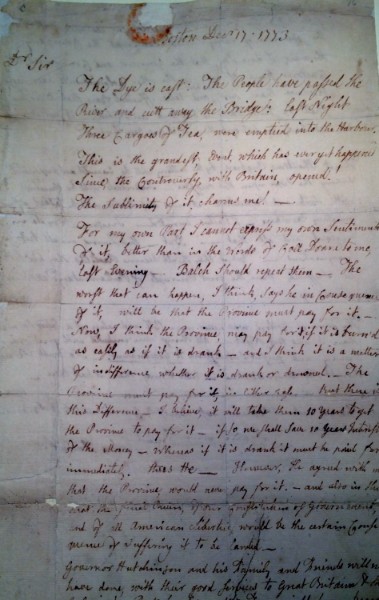 Boston Decr 17. 1773
Dr Sir
The Dye is cast: The People have passed the
River and cutt away the Bridge: last Night
Three Cargoes of Tea, were emptied into the Harbour.
This is the grandest, Event, which has ever yet happened
Since, the Controversy, with Britain, opened!
The Sublimity of it, charms me! —
For my own Part, I cannot express my own Sentiments
of it, better than in the Words of Coll Doane to me,
last Evening — Balch should repeat them — The
worst that can happen, I think, Says he in Consequence
of it, will be that the Province must pay for it. —
Now, I think the Province, may pay for it, if it is burn'd
as easily as if it is drank — and I think it is a matter
of indifference whether it is drank or drowned. The
Province must pay for it, in Either Case. But there is
this Difference. I believe, it will take them 10 Years to get
the Province to pay for it — if so we shall Save 10 Years Interest
of the Money — Whereas if it is drank it must be paid for
immediately. thus He — However, He agreed with me
that the Province, would never pay for it. — and also in this
that the final Ruin, of our Constitution of Government,
and of all American Liberties, would be the certain Conse
quence of Suffering it to be landed. —
Governor Hutchinson and his Family and Friends will
have done, with their good Services to Great Britain &